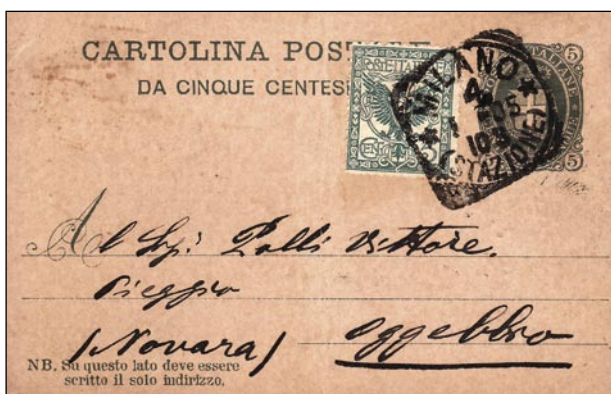 CARTOLINA POST
DA CINQUE CENTESI
POSTE ITALIANE
CENT. 5
MILANO
4
05
10
(STAZIONE)
ITALIANE
5
5
Al Sig: Polli Vittore.
Pieggio
(Novara) Oggebbio
NB. Su questo lato deve essere
scritto il solo indirizzo.